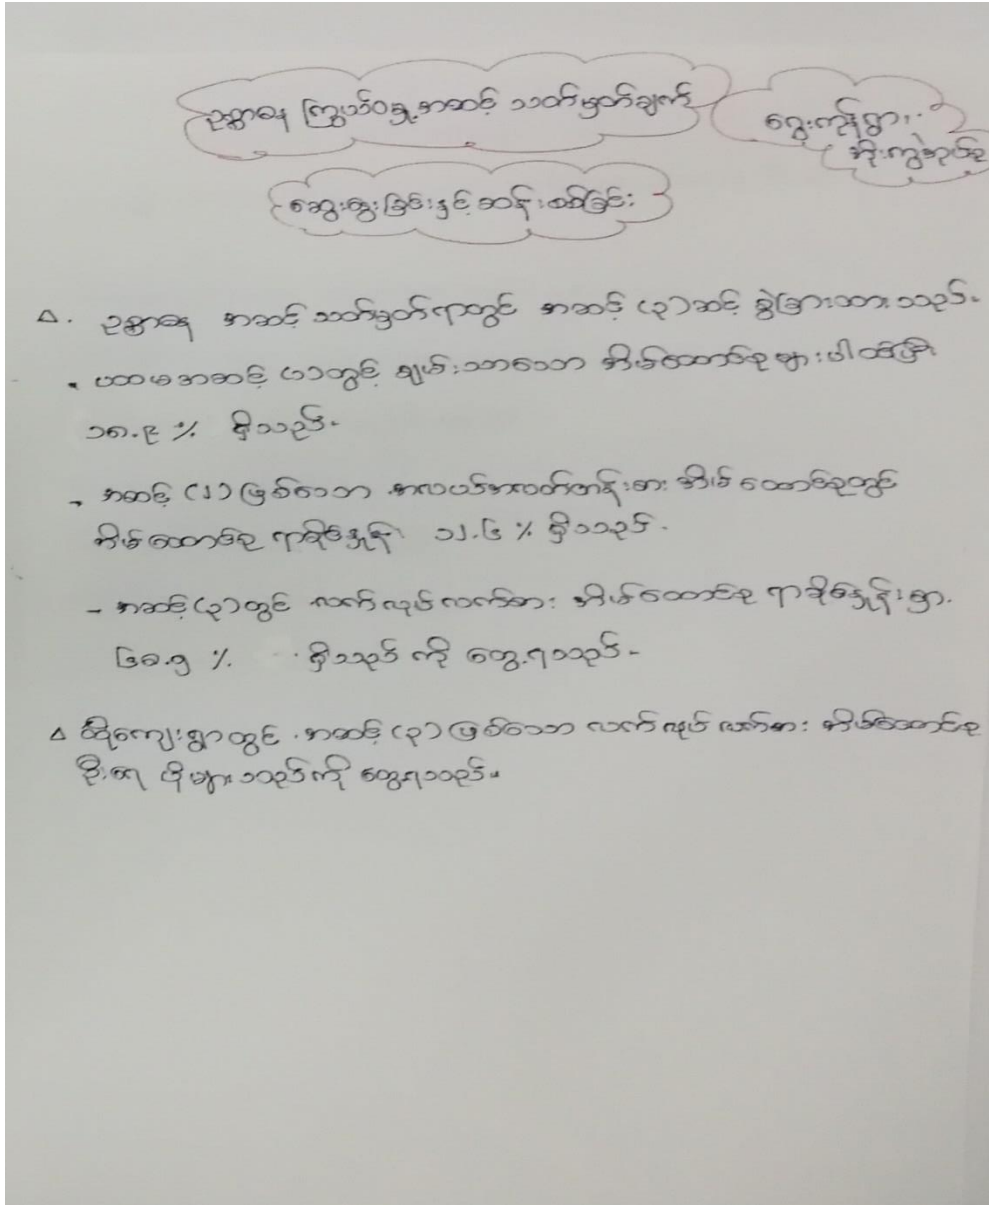 ဥစ္စာဓန ကြွယ်ဝမှု အဆင့် သတ်မှတ်ချက်
ရွေးကုန်ရွာ၊
အိုးကွဲအုပ်စု
ဆွေးနွေးခြင်းနှင့် ဆန်းစစ်ခြင်း
ဥစ္စာဓန အဆင့် သတ်မှတ်ရာတွင် အဆင့် (၃) ဆင့် ခွဲခြားထား သည်။
ပထမအဆင့် (၁) တွင် ချမ်းသာသော အိမ်ထောင်စု များ ပါဝင်ပြီး
၁၈.၉ % ရှိသည်။
- အဆင့် (၂) ဖြစ်သော အလယ်အလတ်တန်းစား အိမ်ထောင်စုတွင်
အိမ်ထောင်စု ရာခိုင်နှုန်း ၁၂.၆ % ရှိသည်။
- အဆင့် (၃) တွင် လက်လုပ်လက်စား အိမ်ထောင်စု ရာခိုင်နှုန်းမှာ
၆၈.၅ % ရှိသည် ကို တွေ့ရသည်။
Δ ထိုကျေးရွာတွင် အဆင့် (၃) ဖြစ်သော လက်လုပ်လက်စား အိမ်ထောင်စု
ဦးရေ ပိုများသည်ကို တွေ့ရသည်။